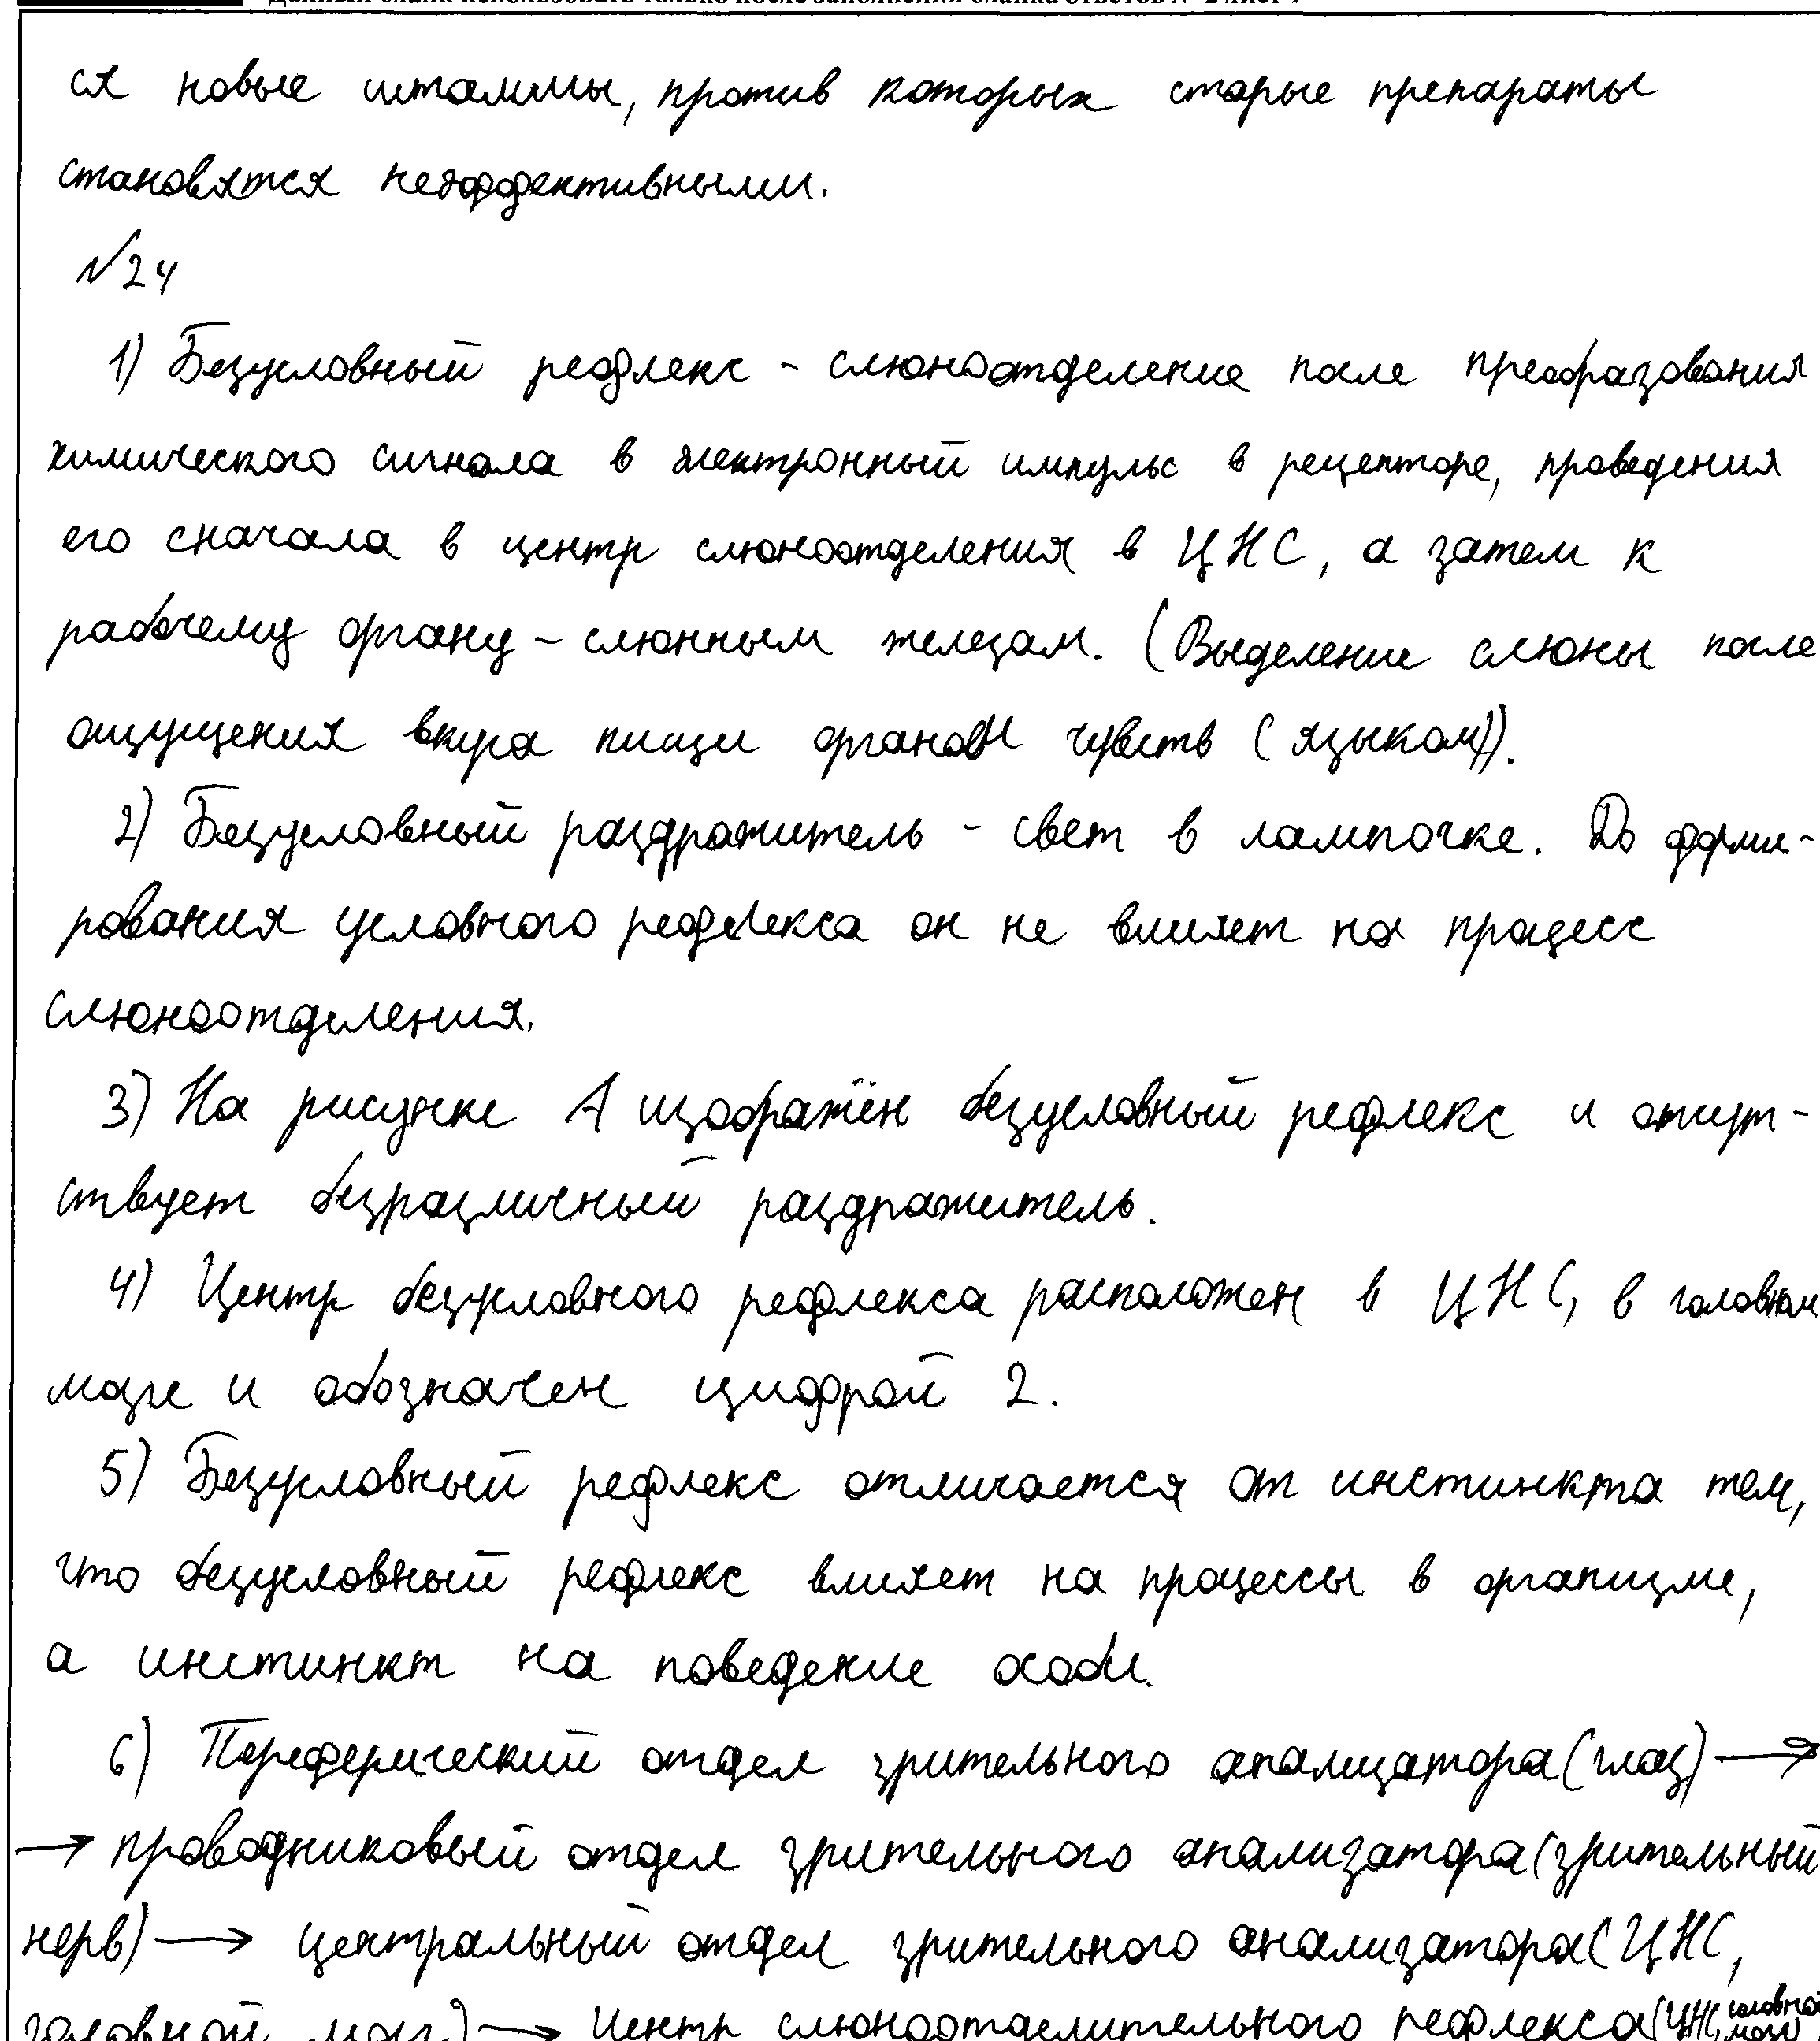 Данный бланк использовать только после заполнения бланка ответов № 2 лист 1
ся новые штаммы, против которых старые препараты
становятся неэффективными.
№24
1) Безусловный рефлекс - слюноотделение после преобразования
химического сигнала в электронный импульс в рецепторе, проведения
его сначала в центр слюноотделения в ЦНС, а затем к
рабочему органу - слюнным железам. (Выделение слюны после
ощущения вкуса пищи органом чувств (языком)).
2) Безусловный раздражитель - свет в лампочке. До форми-
рования условного рефлекса он не влияет на процесс
слюноотделения.
3) На рисунке А изображён безусловный рефлекс и отсут-
ствует безразличный раздражитель.
4) Центр безусловного рефлекса расположен в ЦНС, в головном
мозге и обозначен цифрой 2.
5) Безусловный рефлекс отличается от инстинкта тем,
что безусловный рефлекс влияет на процессы в организме,
а инстинкт на поведение особи.
6) Переферический отдел зрительного анализатора (глаз) →
→ проводниковый отдел зрительного анализатора (зрительный
нерв) → центральный отдел зрительного анализатора (ЦНС,
головной мозг) → Центр слюноотделительного рефлекса (ЦНС, головной мозг)